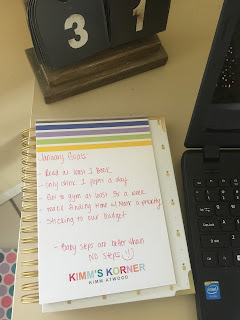 3 1
January Goals
- Read at least 1 Book
- Only drink 1 pop a day
- Go to gym at least 3x a week
- make finding time w/ Noor a priority
- Sticking to our budget
- Baby steps are better than
NO steps :)
KIMM'S KORNER
KIMM ATWOOD
intel